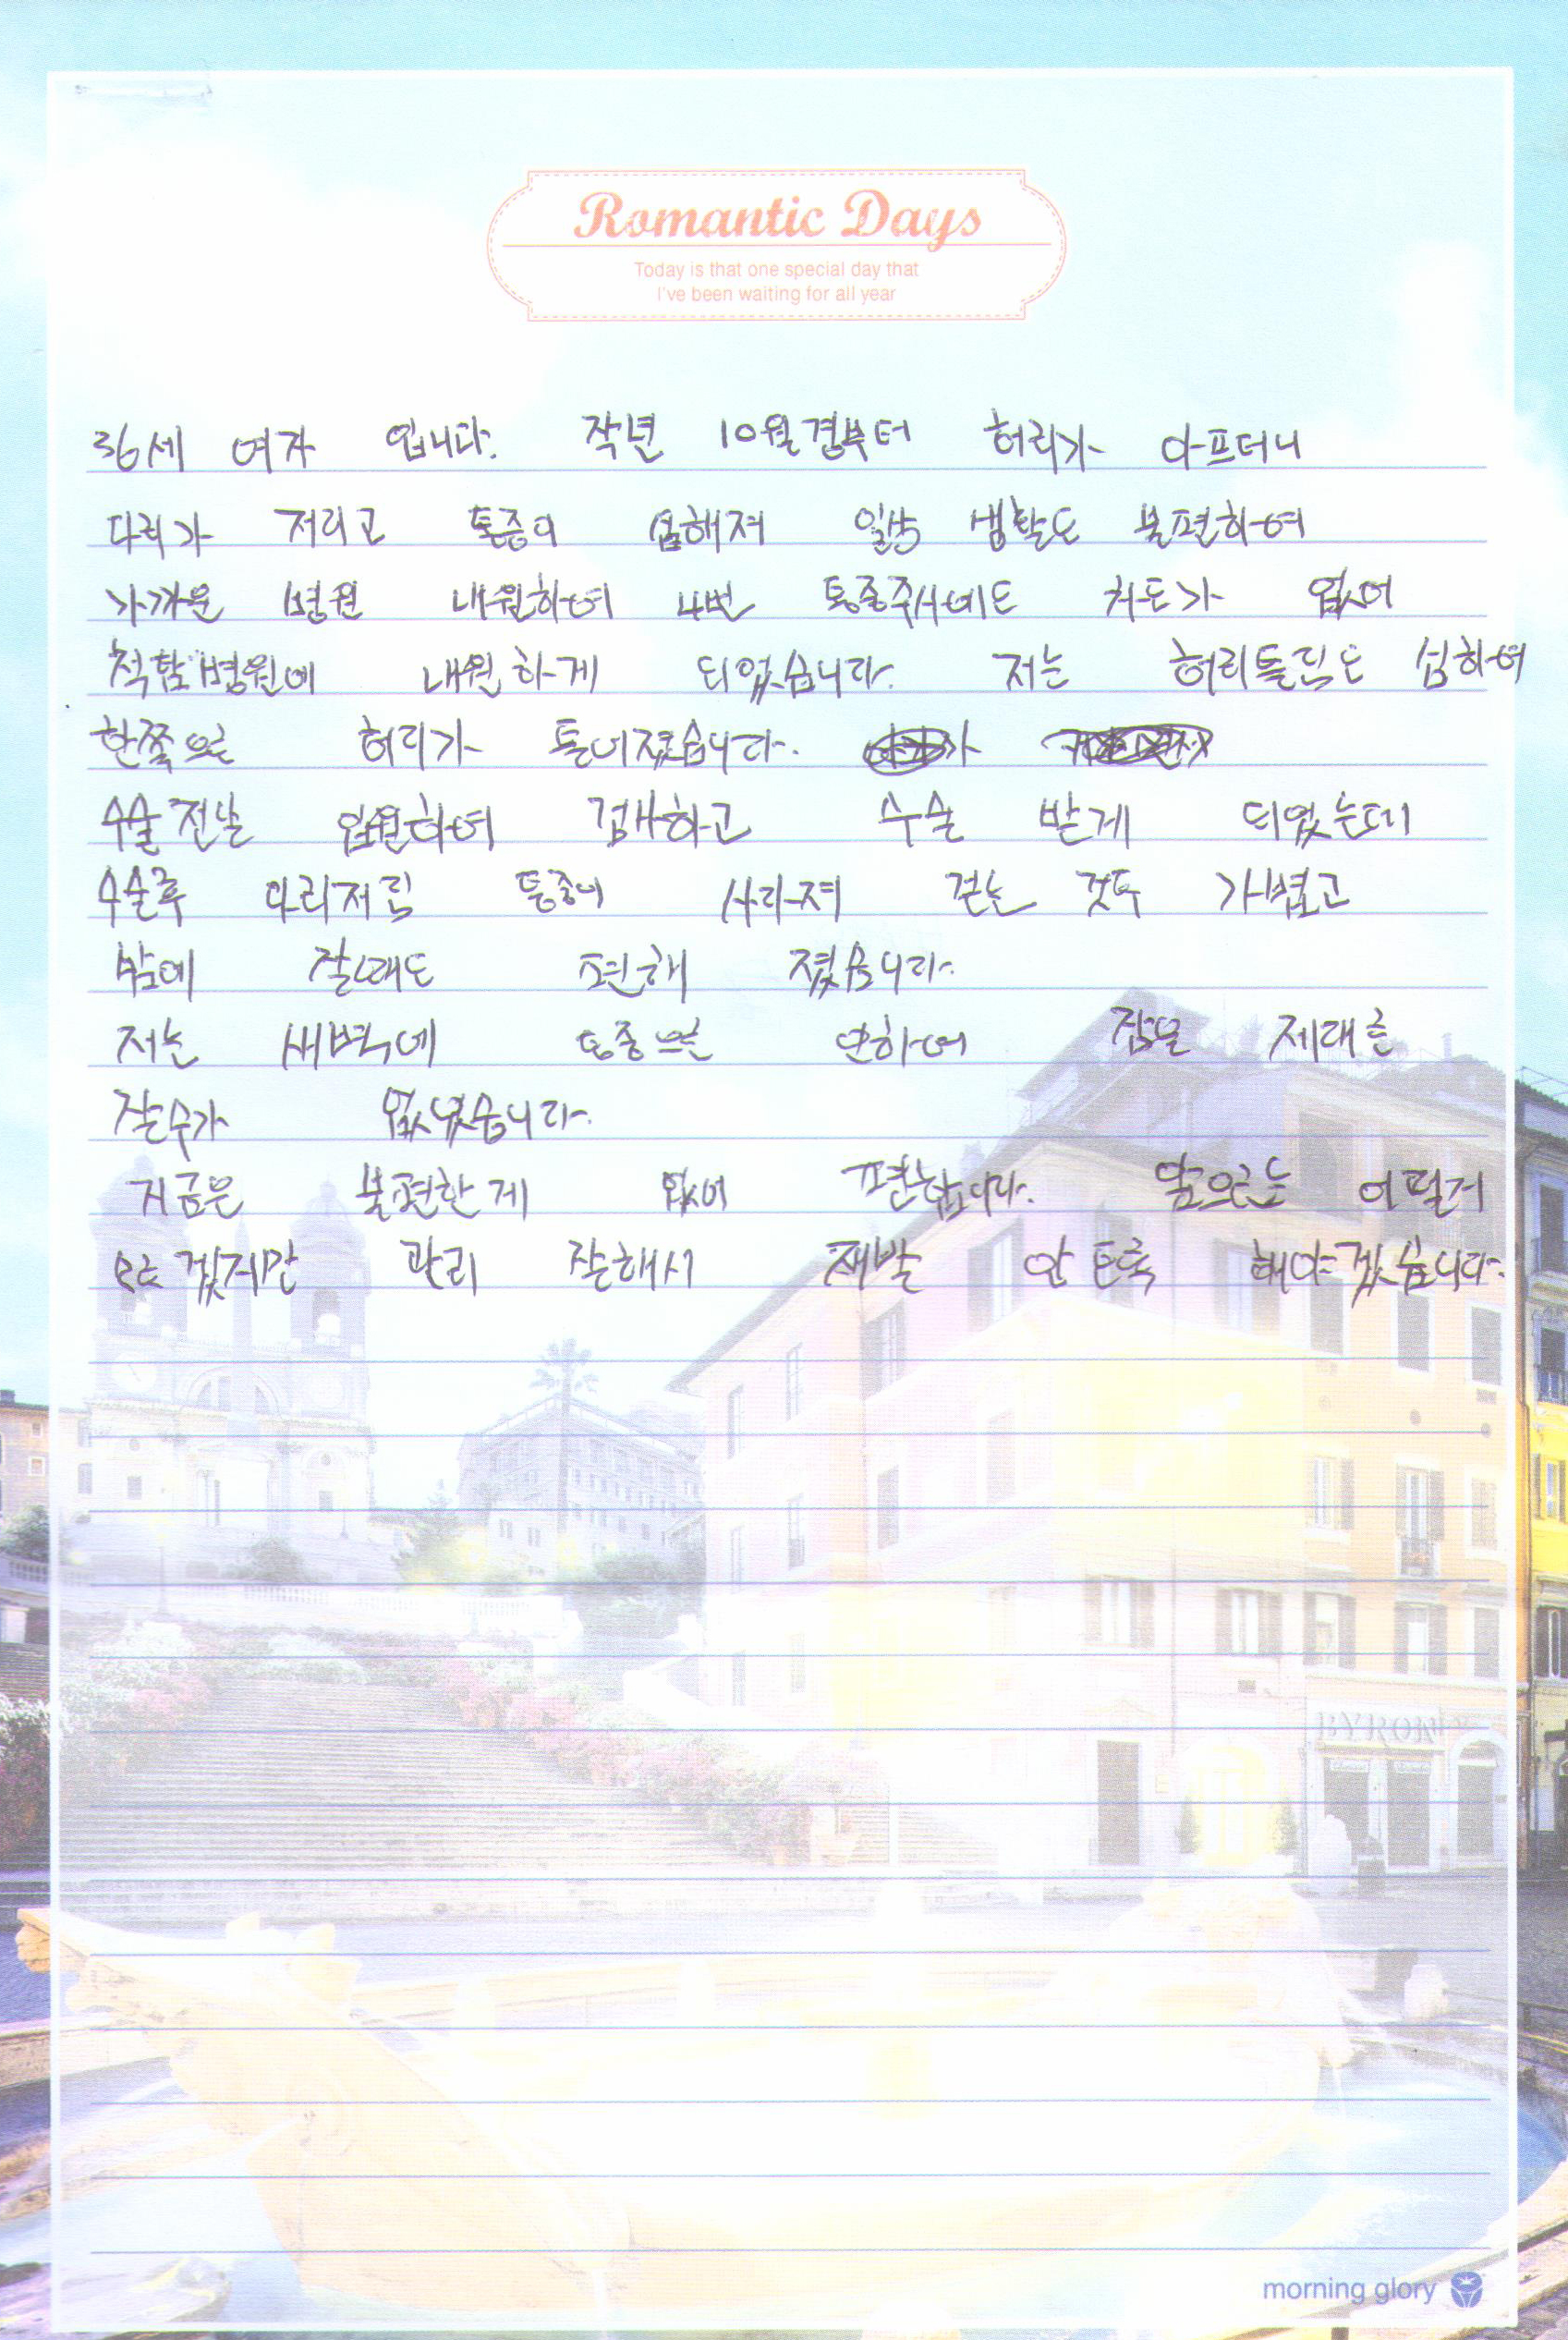 Romantic Days
Today is that one special day that
I've been waiting for all year
36세 여자 입니다. 작년 10월경부터 허리가 아프더니
다리가 저리고 통증이 심해져 일상 생활도 불편하여
가까운 병원 내원하여 4번 통증주사에도 차도가 없어
척탑병원에 내원하게 되었습니다. 저는 허리틀림도 심하여
한쪽으로 허리가 틀어졌습니다. 가
수술전날 입원하여 검사하고 수술 받게 되었는데
수술후 다리저림 통증이 사라져 걷는 것도 가볍고
밤에 잘때도 편해 졌습니다.
저는 새벽에 통증으로 인하여 잠을 제대로
잘수가 없었습니다.
지금은 불편한게 없어 편합니다. 앞으로는 어떨지
모르겠지만 관리 잘해서 재발 안 토록 해야겠습니다.
morning glory